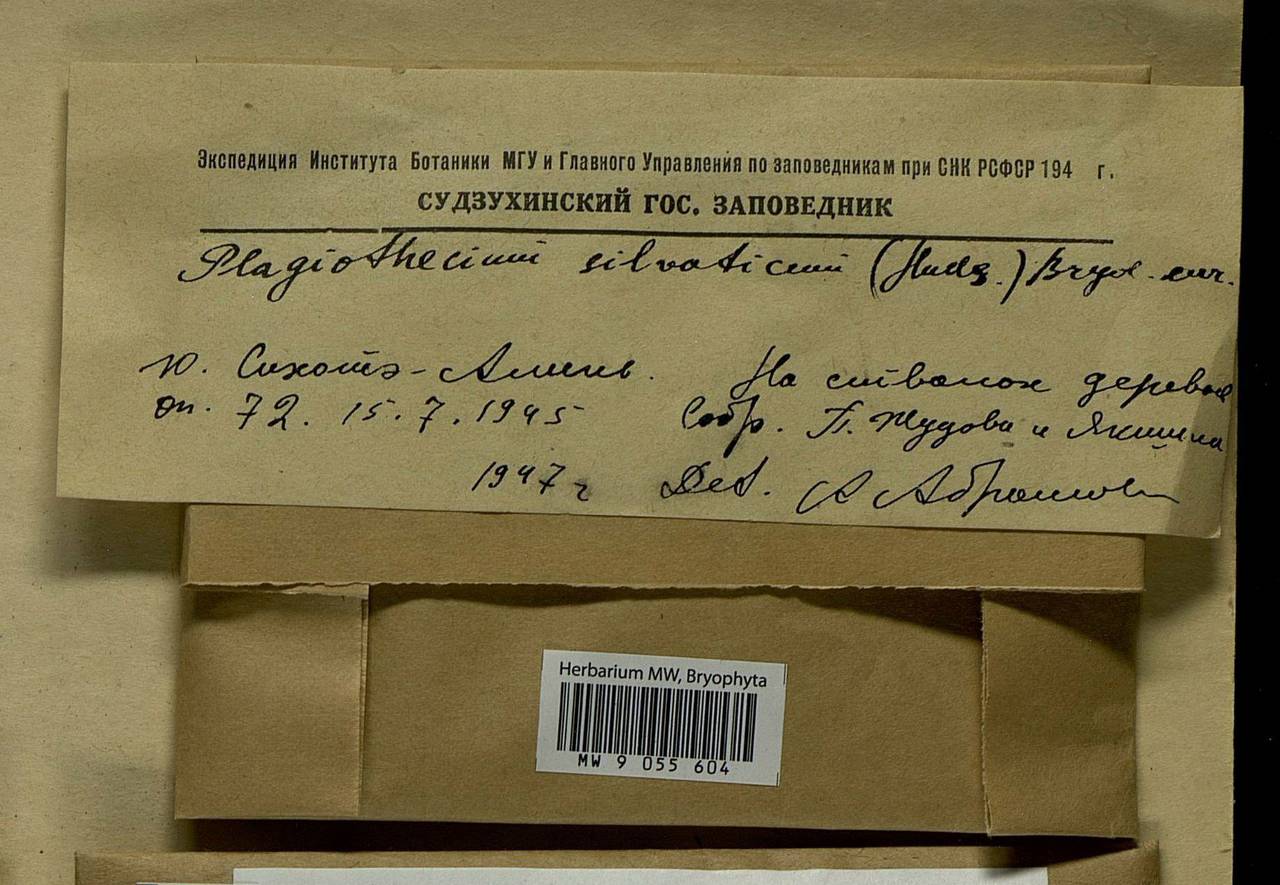 Экспедиция Института Ботаники МГУ и Главного Управления по заповедникам при СНК РСФСР 194 г.
СУДЗУХИНСКИЙ ГОС. ЗАПОВЕДНИК
Plagiothecium silvaticum (Huds.) Bryol. eur.
Ю. Сихотэ-Алинь. На стволах деревьев
оп. 72. 15.7.1945 Собр. П. Жудова и
1947 г Det. А Абрамов
Herbarium MW, Bryophyta
MW 9 055 604